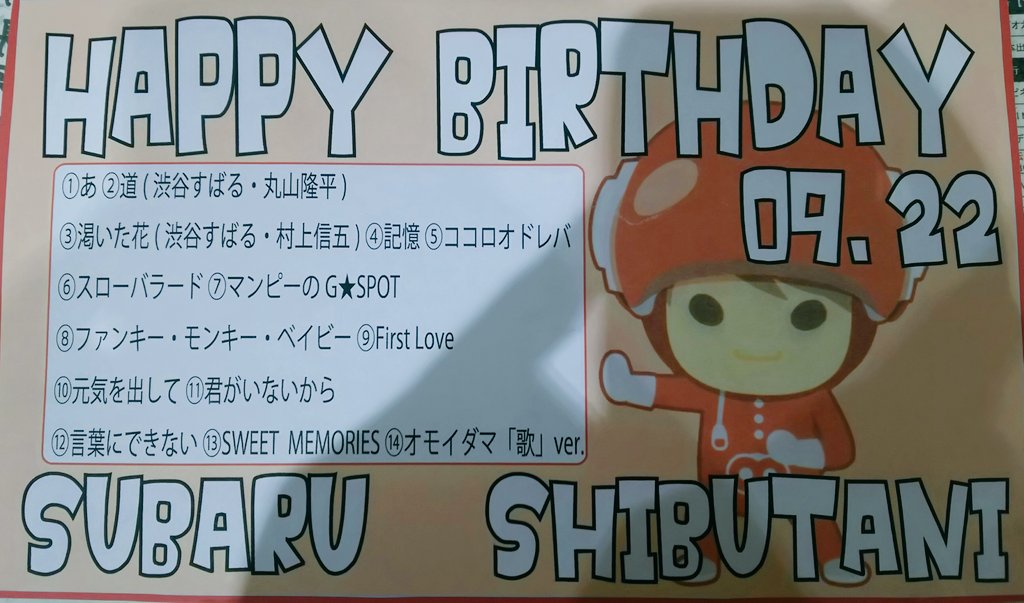 HAPPY BIRTHDAY
09.22
①あ ②道 ( 渋谷すばる・丸山隆平 )
③渇いた花 ( 渋谷すばる・村上信五 ) ④記憶 ⑤ココロオドレバ
⑥スローバラード ⑦マンピーの G★SPOT
⑧ファンキー・モンキー・ベイビー ⑨First Love
⑩元気を出して ⑪君がいないから
⑫言葉にできない ⑬SWEET MEMORIES ⑭オモイダマ「歌」ver.
SUBARU SHIBUTANI